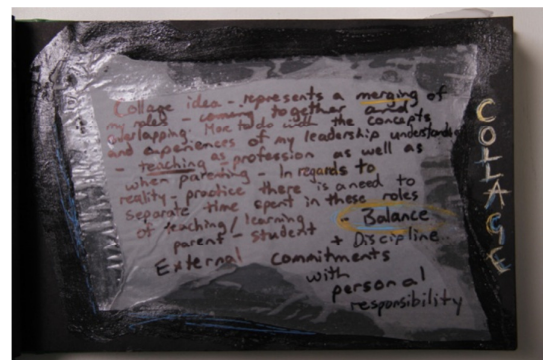 Collage idea - represents a merging of
my roles - coming together and
overlapping. More to do with the concepts
and experiences of my leadership understanding
- teaching as profession as well as
when parenting - In regards to
reality/practice there is a need to
separate time spent in these roles
of teaching/learning - Balance
parent - student + Discipline..
External commitments
with
personal
responsibility
COLLAGE